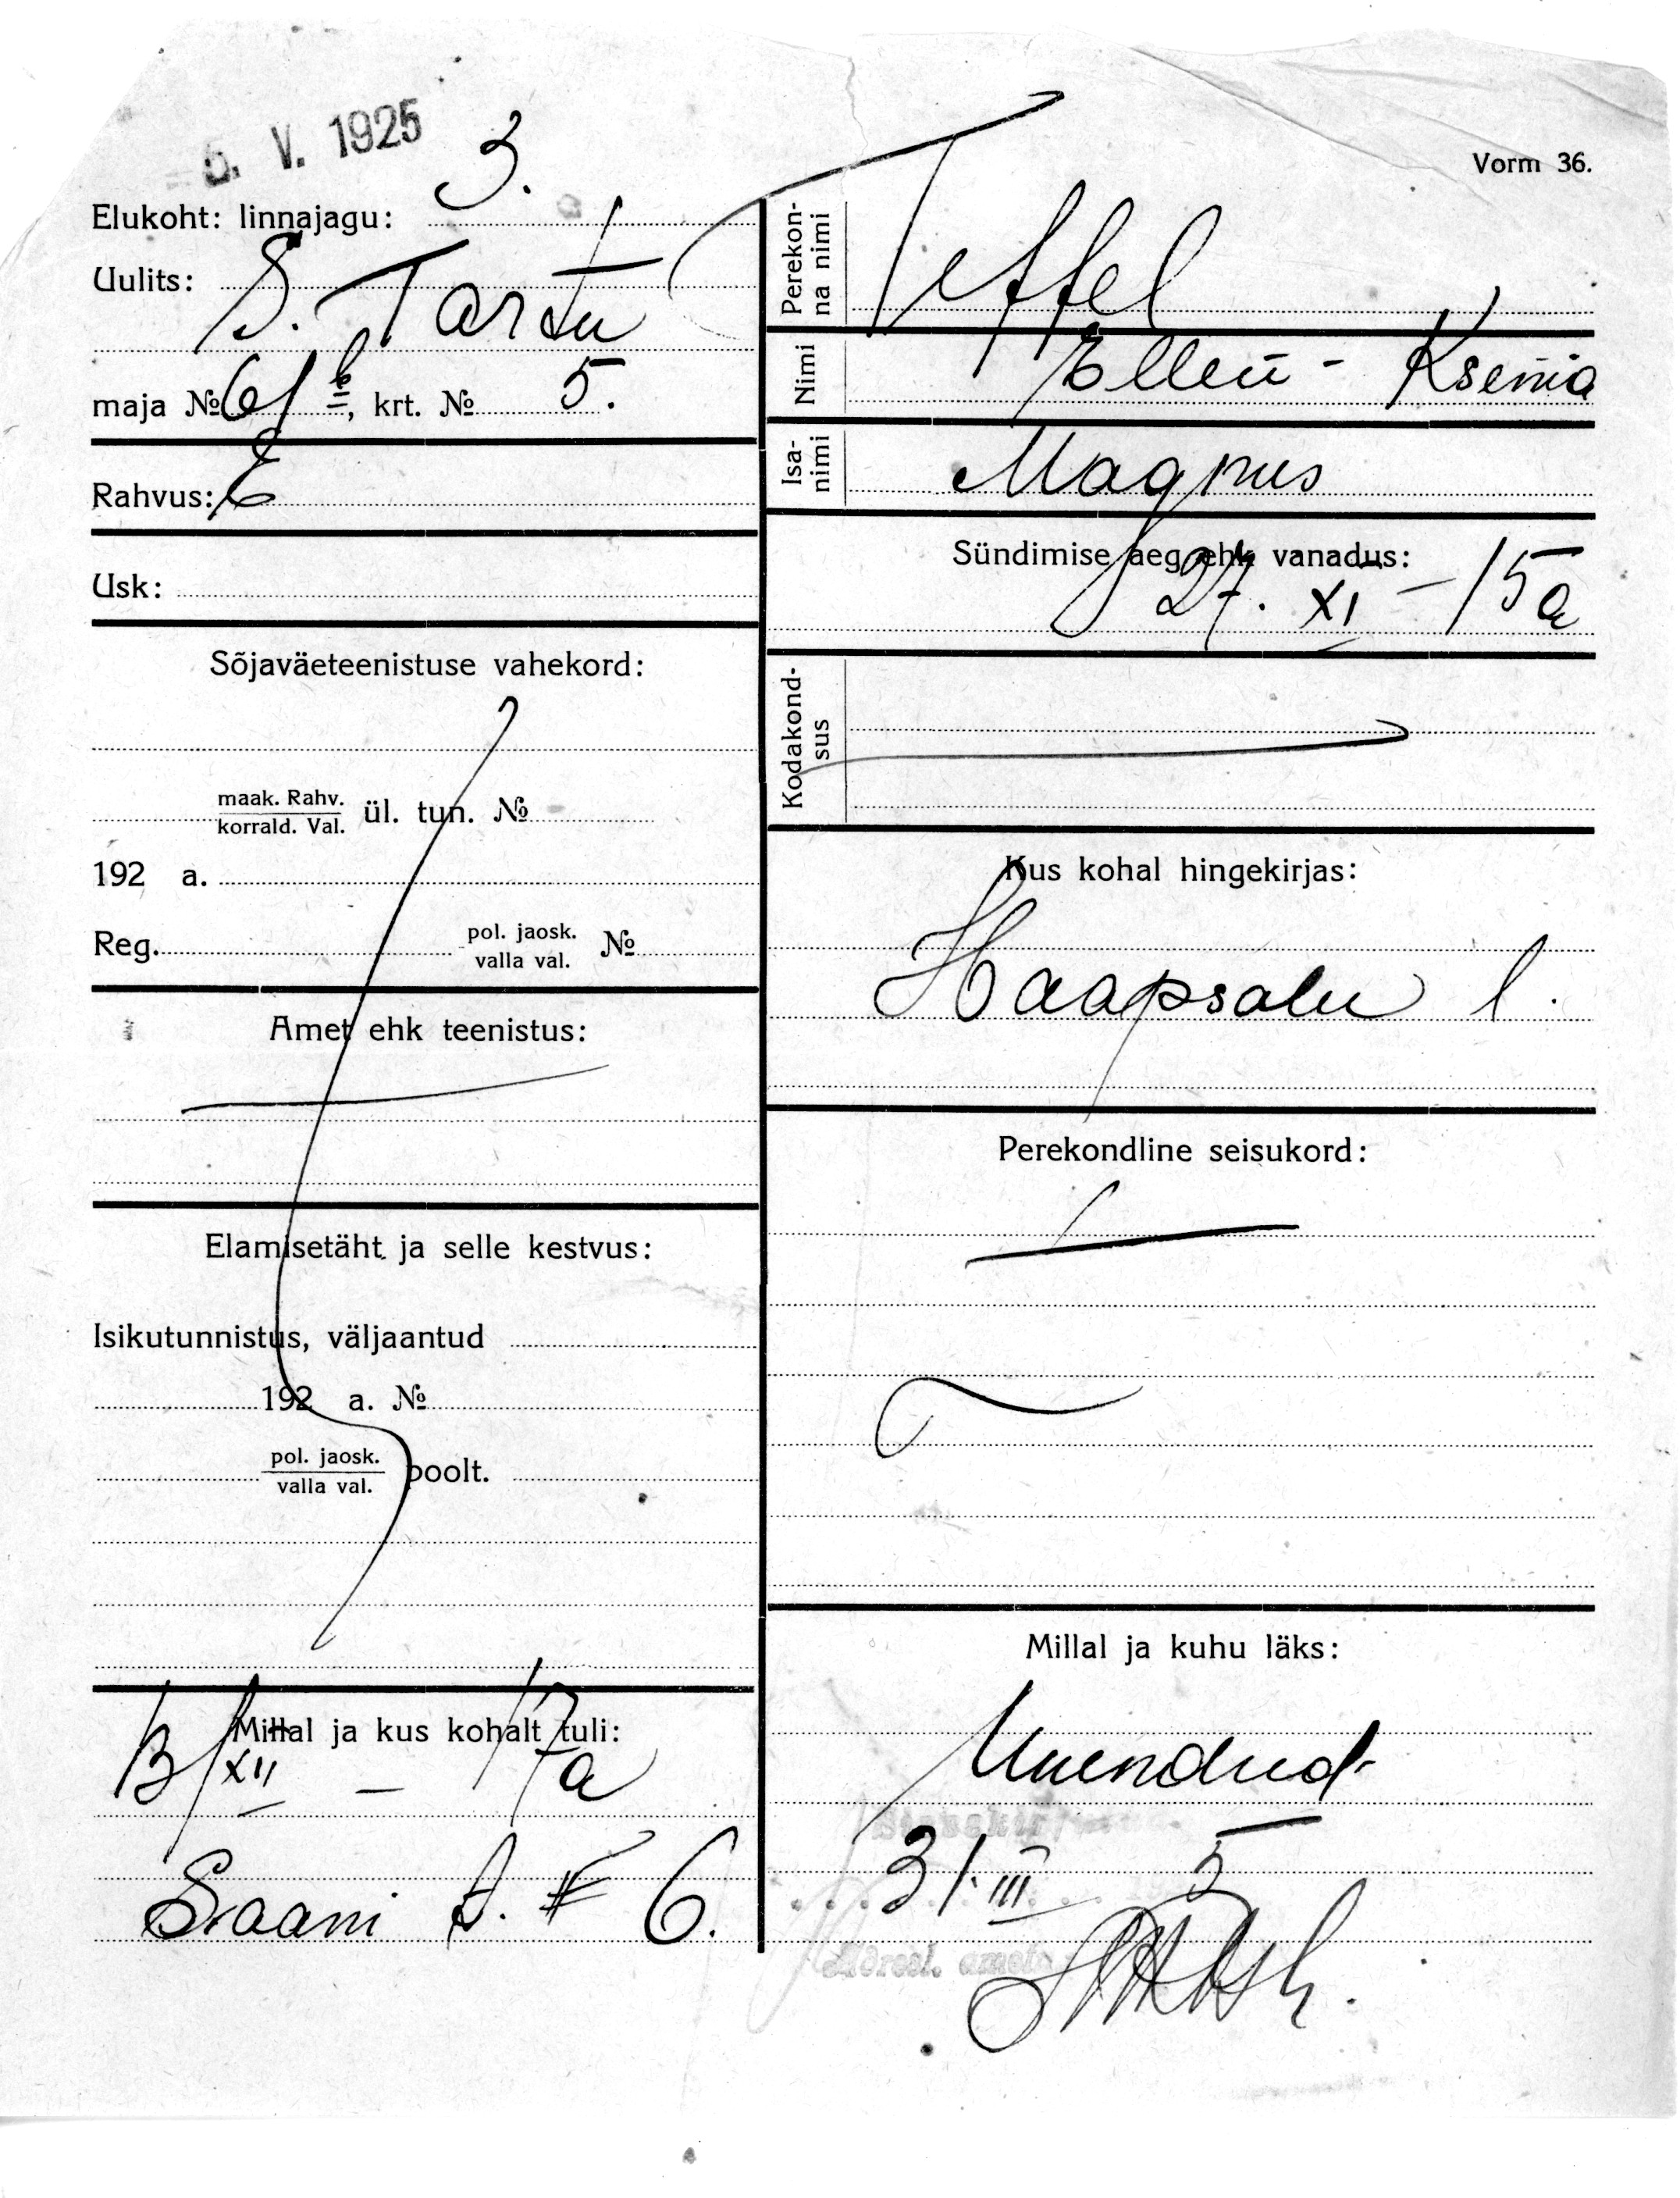 5. V. 1925
Vorm 36.
Elukoht: linnajagu: 3.
Uulits: S. Tartu
maja № 61 b, krt. № 5.
Rahvus: E
Usk:
Sõjaväeteenistuse vahekord:
maak. Rahv.
korrald. Val. ül. tun. №
192 a.
Reg. pol. jaosk. №
valla val.
Amet ehk teenistus:
Elamisetäht ja selle kestvus:
Isikutunnistus, väljaantud
192 a. №
pol. jaosk.
valla val. poolt.
Millal ja kus kohalt tuli:
13/XII – 17 a
6.
Perekon-
na nimi Teffel
Nimi Ellen - Ksenia
Isa-
nimi Magnus
Sündimise aeg ehk vanadus:
27. XI – 15 a
Kodakond-
sus
Kus kohal hingekirjas:
Haapsalu l.
Perekondline seisukord:
Millal ja kuhu läks:
Uuendud
31. III 5